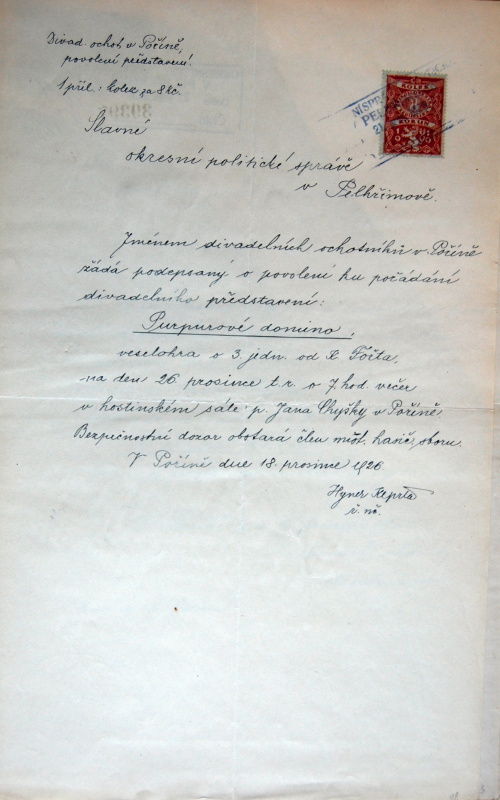 Divad. ochot. v Pořině,
povolení představení
1 příl.: kolek za 8 kč.
KOLEK
8
KORUN
Slavné
okresní politické správě
v Pelhřimově.
Jménem divadelních ochotníků v Pořině
žádá podepsaný o povolení ku pořádání
divadelního představení:
Purpurové domino,
veselohra o 3. jedn. od K. Fořta,
na den 26 prosince t. r. o 7. hod. večer
v hostinském sále p. Jana Chyšky v Pořině.
Bezpečnostní dozor obstará člen míst. hasič. sboru.
V Pořině dne 18. prosince 1926
Hyner Keprta
ř. uč.